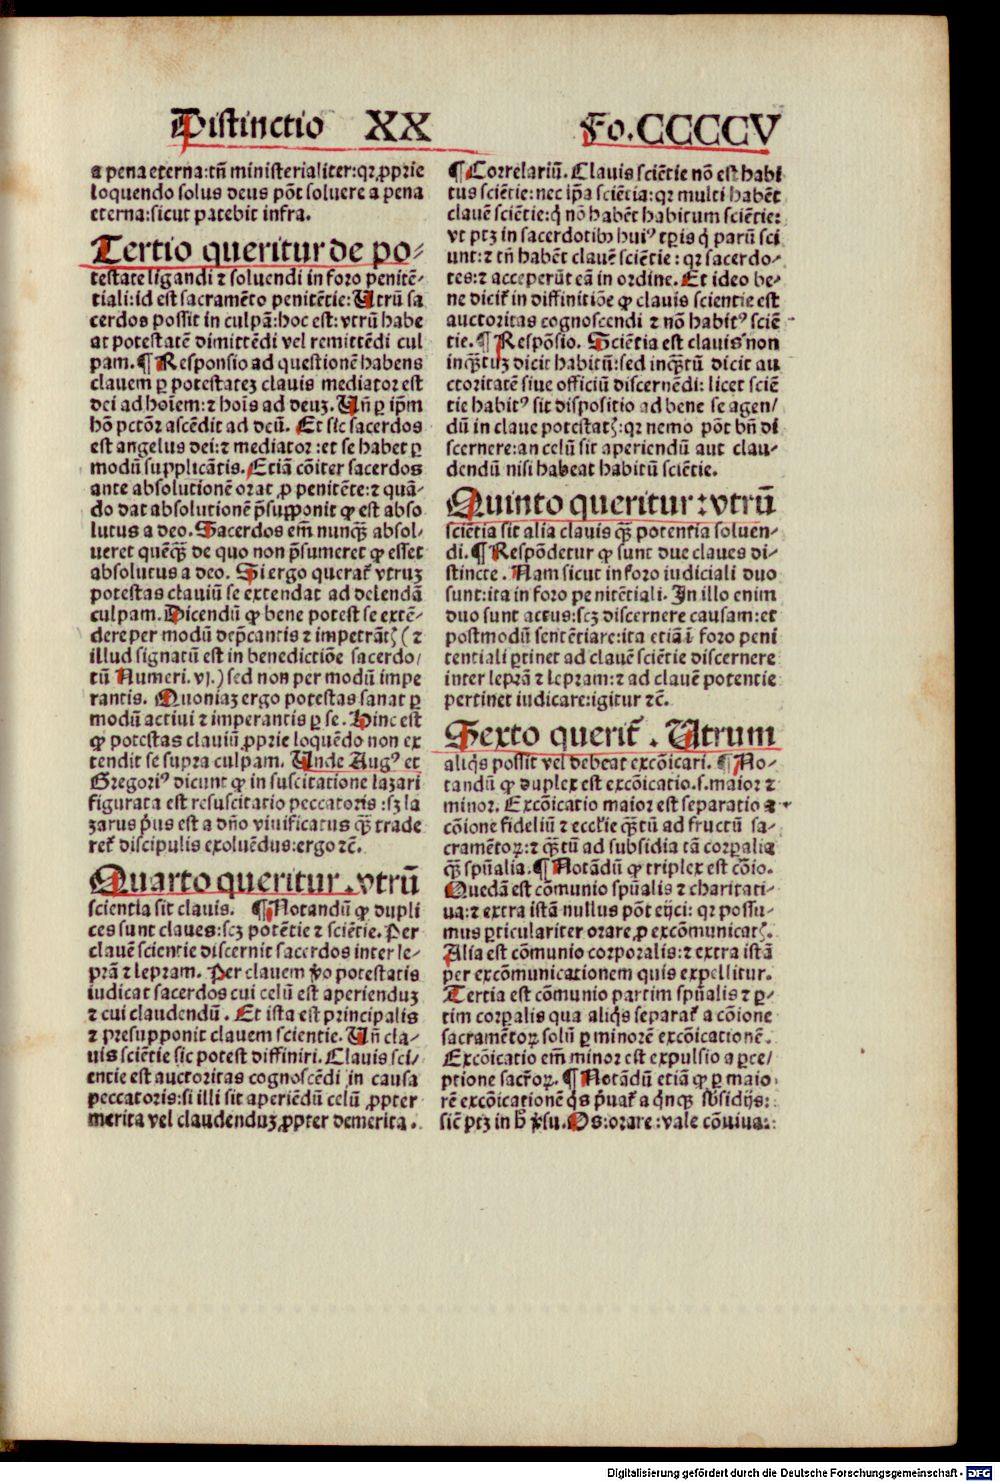 Distinctio XX Fo.CCCCCV
a pena eterna:tñ ministerialiter:qꝛ ꝓprie
loquendo solus deus põt soluere a pena
eterna:sicut patebit infra.
Tertio queritur de po⸗
testate ligandi ⁊ soluendi in foro penitē⸗
tiali:id est sacramēto penitētie:Utrū sa
cerdos possit in culpā:hoc est:vtrū habe
at potestatē dimittēdi vel remittēdi cul
pam.¶ Responsio ad questionē habens
clauem ꝑ potestateꝫ clauis mediator est
dei ad hoīem:⁊ hoīs ad deuꝫ. Uñ ꝑ ip̄m
hō pctōr ascēdit ad deū. Et sic sacerdos
est angelus dei:⁊ mediator:et se habet ꝑ
modū supplicātis. Etiā cōiter sacerdos
ante absolutionē orat ꝓ penitēte:⁊ quā⸗
do dat absolutionē p̄supponit ꝙ est abso
lutus a deo. Sacerdos em̄ nunqꝫ̄ absol⸗
ueret quēqꝫ̄ de quo non p̄sumeret ꝙ esset
absolutus a deo. Si ergo querat᷑ vtruꝫ
potestas clauiū se extendat ad delendā
culpam. Dicendū ꝙ bene potest se extē⸗
dere per modū dep̄cantis ⁊ impetrātꝭ (⁊
illud signatū est in benedictiōe sacerdo/
tū Numeri.vj.) sed non per modū impe
rantis. Quoniaꝫ ergo potestas sanat ꝑ
modū actiui ⁊ imperantis ꝑ se. Hinc est
ꝙ potestas clauiū ꝓprie loquēdo non ex
tendit se supra culpam. Unde Augꝰ et
Gregoriꝰ dicunt ꝙ in suscitatione lazari
figurata est resuscitatio peccatoris:sꝫ la
zarus p̄us est a dño viuificatus qꝫ̄ trade
ret᷑ discipulis exoluēdus:ergo ⁊c̄.
Quarto queritur.vtrū
scientia sit clauis. ¶ Notandū ꝙ dupli
ces sunt claues:scꝫ potētie ⁊ sciētie. Per
clauē scientie discernit sacerdos inter le⸗
prā ⁊ lepram. Per clauem ṽo potestatis
iudicat sacerdos cui celū est aperienduꝫ
⁊ cui claudendū. Et ista est principalis
⁊ presupponit clauem scientie. Uñ cla⸗
uis sciētie sic potest diffiniri. Clauis sci/
entie est auctoritas cognoscēdi in causa
peccatoris:si illi sit aperiēdū celū ꝓpter
merita vel claudenduꝫ ꝓpter demerita.
¶ Correlariū. Clauis sciētie nō est habi
tus sciētie:nec ip̄a sciētia:qꝛ multi habēt
clauē sciētie:q̇ nō habēt habitum sciētie:
vt ptꝫ in sacerdotibꝰ huiꝰ tꝑis q̇ parū sci
unt:⁊ tñ habēt clauē sciētie:qꝛ sacerdo⸗
tes:⁊ acceperūt eā in ordine. Et ideo be⸗
ne dicit᷑ in diffinitiōe ꝙ clauis scientie est
auctoritas cognoscendi ⁊ nō habitꝰ sciē⸗
tie.¶ Respōsio. Sciētia est clauis non
inqꝫ̄tuꝫ dicit habitū:sed inqꝫ̄tū dicit au
ctoritatē siue officiū discernēdi:licet sciē
tie habitꝰ sit dispositio ad bene se agen/
dū in claue potestatꝭ:qꝛ nemo põt bñ di
scernere:an celū sit aperiendū aut clau⸗
dendū nisi habeat habitū sciētie.
Quinto queritur:vtrū
sciētia sit alia clauis qꝫ̄ potentia soluen⸗
di.¶ Respōdetur ꝙ sunt due claues di⸗
stincte. Nam sicut in foro iudiciali duo
sunt:ita in foro penitētiali. In illo enim
duo sunt actus:scꝫ discernere causam:et
postmodū sentētiare:ita etiā ī foro peni
tentiali ꝑtinet ad clauē sciētie discernere
inter leprā ⁊ lepram:⁊ ad clauē potentie
pertinet iudicare:igitur ⁊c̄.
Sexto querit᷑. Utrum
aliq̇s possit vel debeat excōicari. ¶ No⸗
tandū ꝙ duplex est excōicatio.s.maior ⁊
minor. Excōicatio maior est separatio a
cōione fideliū ⁊ eccl̄ie qꝫ̄tū ad fructū sa⸗
cramētoꝝ:⁊ qꝫ̄tū ad subsidia tā corꝑalia
qꝫ̄ spūalia.¶ Notādū ꝙ triplex est cōio.
Quedā est cōmunio spūalis ⁊ charitati⸗
ua:⁊ extra istā nullus põt eijci:qꝛ possu⸗
mus ꝑticulariter orare ꝓ excōmunicatꝭ.
Alia est cōmunio corporalis:⁊ extra istā
per excōmunicationem quis expellitur.
Tertia est cōmunio partim spūalis ⁊ ꝑ⸗
tim corꝑalis qua aliq̇s separat᷑ a cōione
sacramētoꝝ solū ꝑ minorē excōicationē.
Excōicatio em̄ minor est expulsio a ꝑce/
ptione sacr̄oꝝ.¶ Notādū etiā ꝙ ꝑ maio
rē excōicationē q̇s p̄uat᷑ a q̇nqꝫ sb̄sidijs:
sic̄ ptꝫ in h̄ ṽsu. Os:orare:vale cōuiua:
Digitalisierung gefördert durch die Deutsche Forschungsgemeinschaft - DFG